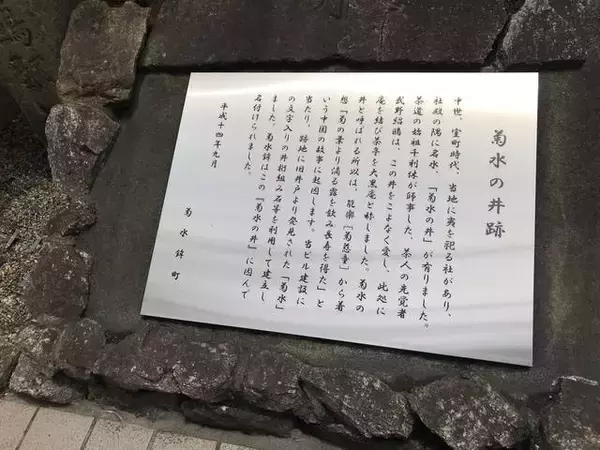 菊水の井跡
中世、室町時代、当地に夷を祀る社があり、
社殿の隅に名水、「菊水の井」が有りました。
茶道の始祖千利休が師事した、茶人の先覚者
武野紹鴎は、この井をこよなく愛し、此処に
庵を結び茶亭を大黒庵と称しました。菊水の
井と呼ばれる所以は、能楽〔菊慈童〕から着
想『菊の葉より滴る露を飲み長寿を得た』と
いう中国の故事に起因します。当ビル建設に
当たり、跡地に旧井戸より発見された「菊水」
の文字入りの井桁組み石等を利用して建立し
ました。菊水鉾はこの『菊水の井』に因んで
名付けられました。
平成十四年九月
菊水鉾町